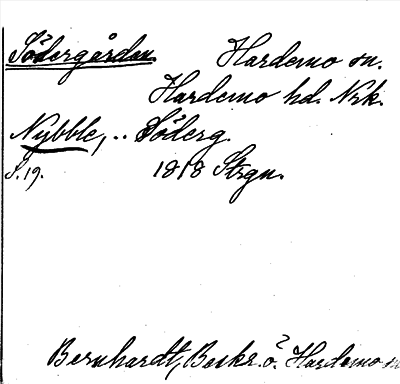 Södergården Hardemo sn.
Hardemo hd. Nrk.
Nybble, .. Söderg.
S. 19. 1818 Strgn.
Bernhardt, Beskr. ö. Hardemo sn